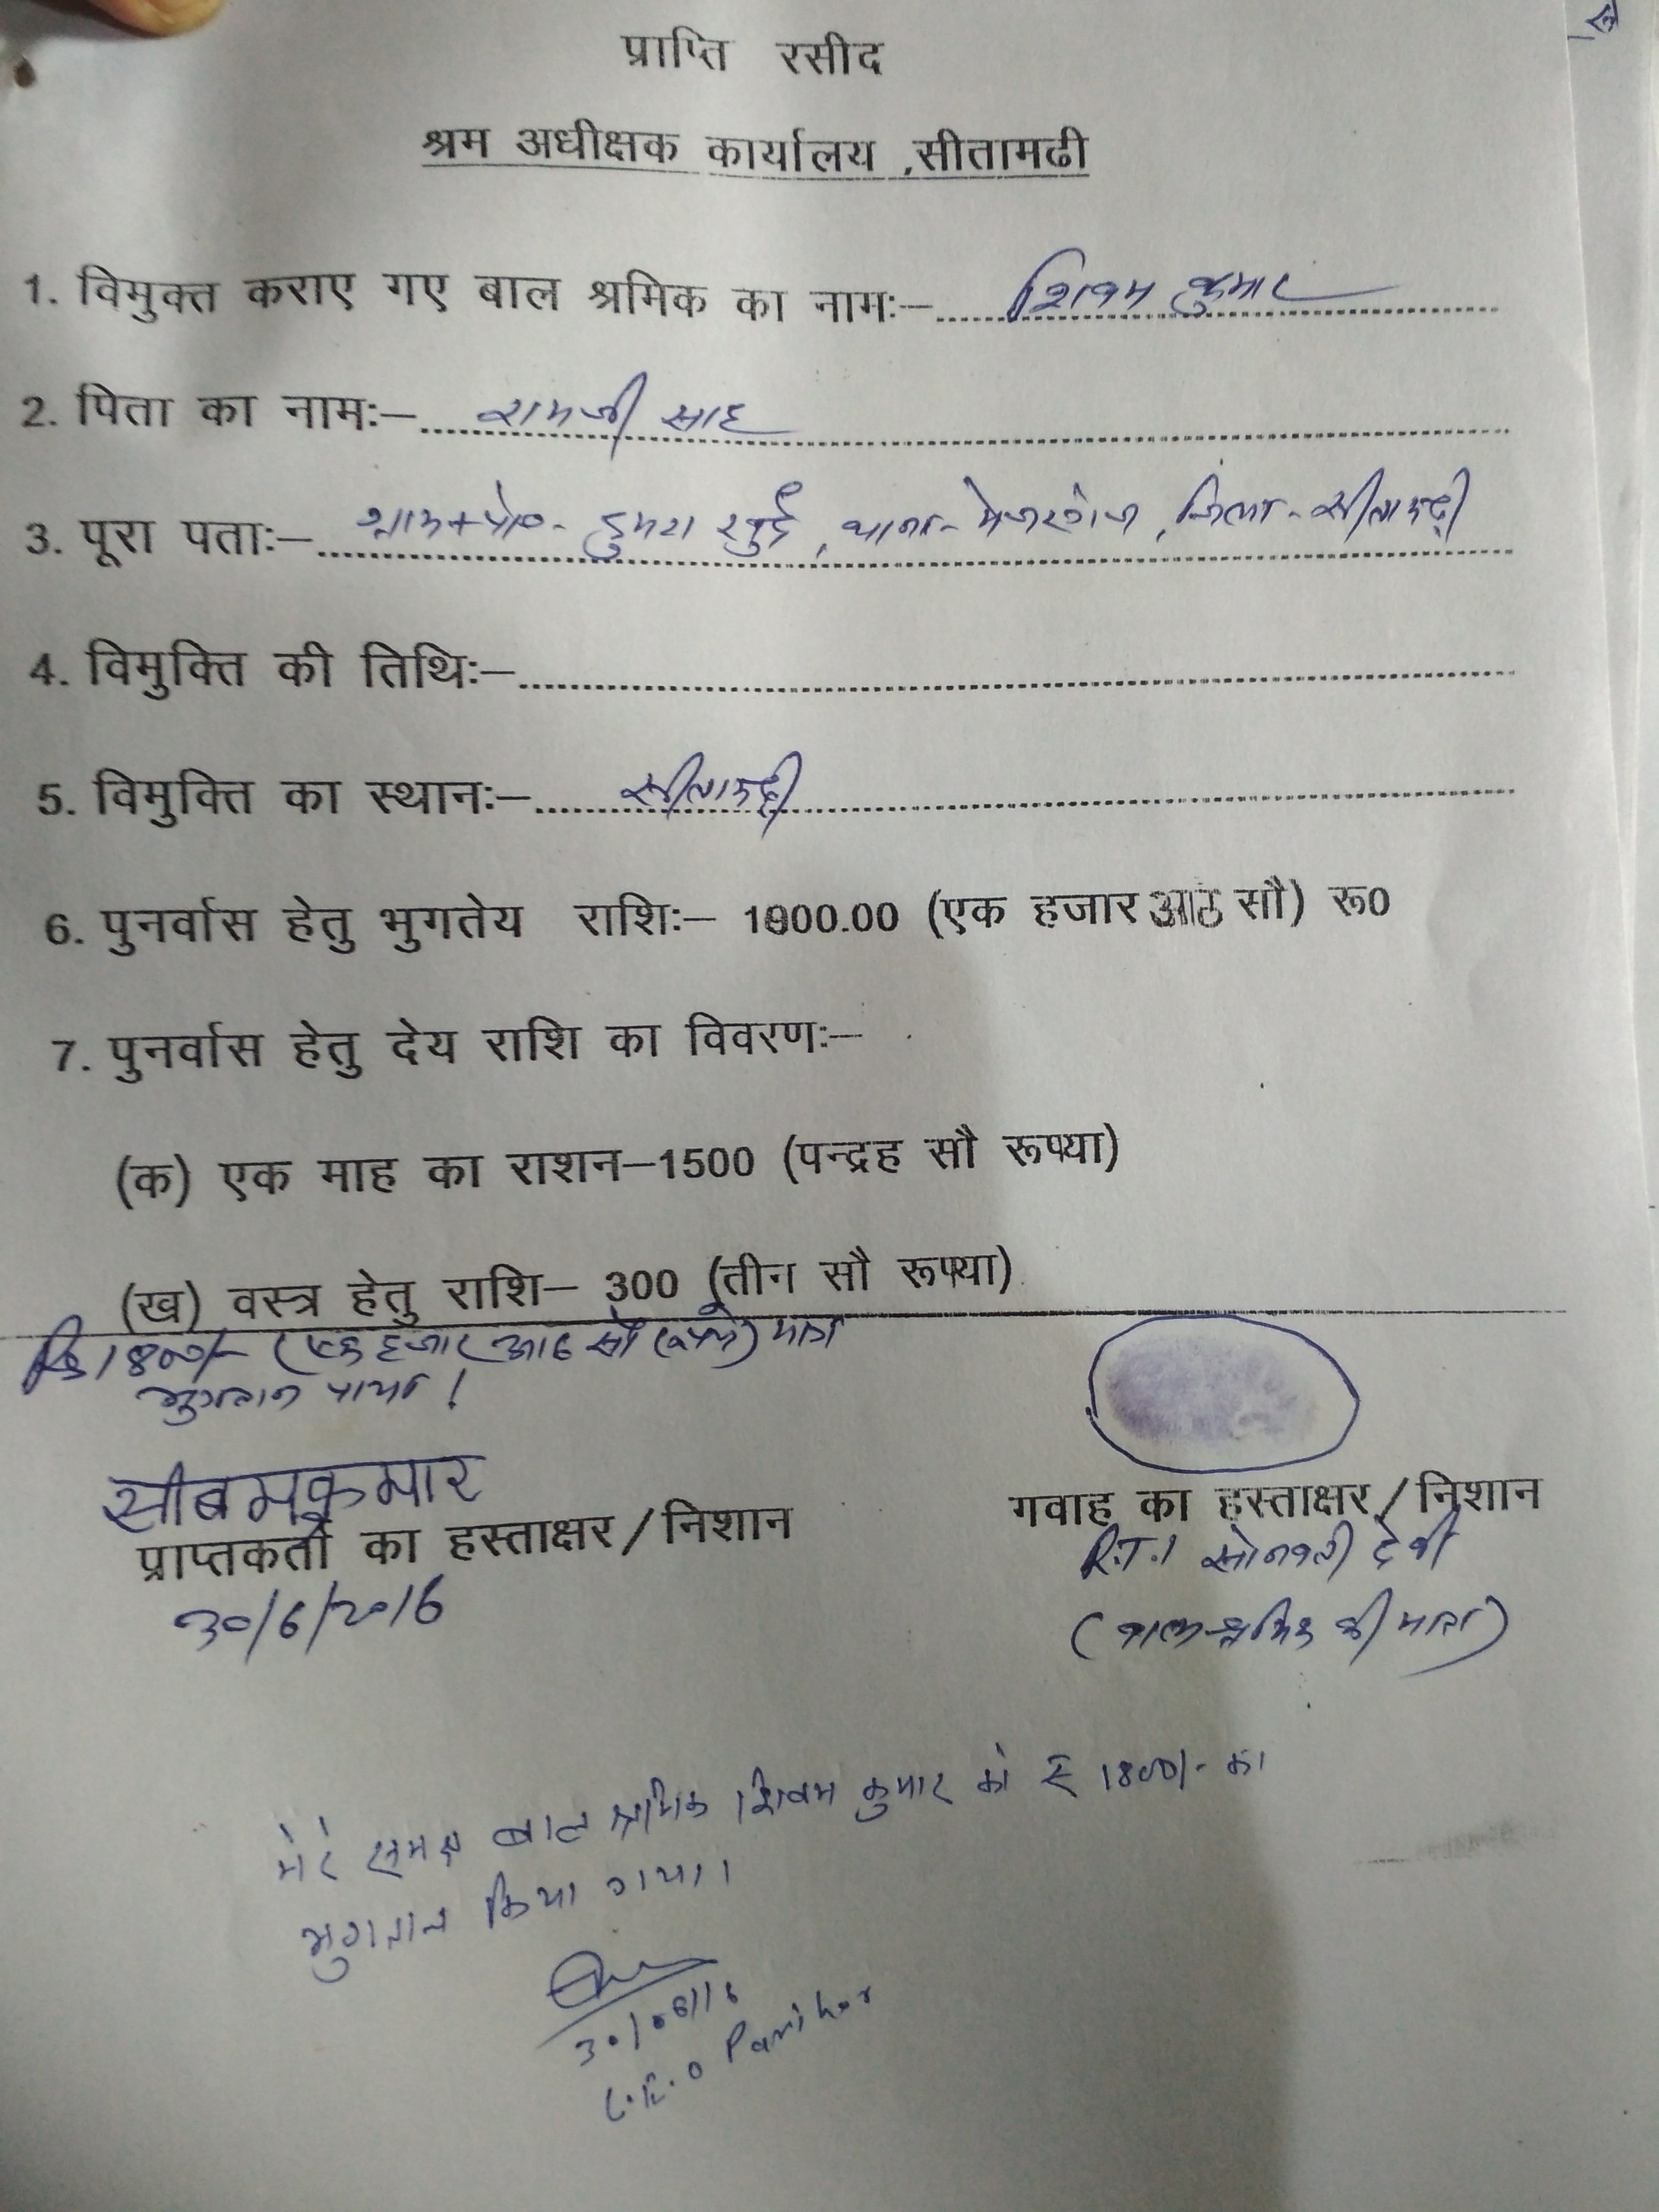 प्राप्ति रसीद
श्रम अधीक्षक कार्यालय ,सीतामढी
1. विमुक्त कराए गए बाल श्रमिक का नामः– शिवम कुमार
2. पिता का नामः– रामजी साह
3. पूरा पताः– ग्राम+पो०- डुमरा खुर्द, थाना- मेजरगंज, जिला- सीतामढ़ी
4. विमुक्ति की तिथिः–
5. विमुक्ति का स्थानः– सीतामढ़ी
6. पुनर्वास हेतु भुगतेय राशिः– 1800.00 (एक हजार आठ सौ) रू0
7. पुनर्वास हेतु देय राशि का विवरणः–
(क) एक माह का राशन–1500 (पन्द्रह सौ रूपया)
(ख) वस्त्र हेतु राशि– 300 (तीन सौ रूपया)
Rs 1800/- (एक हजार आठ सौ रूपये) मात्र
भुगतान पाया।
सीबमकुमार
प्राप्तकर्ता का हस्ताक्षर/निशान
30/6/2016
गवाह का हस्ताक्षर/निशान
R.T.I सोनवती देवी
(बाल श्रमिक की माता)
मेरे समक्ष बाल श्रमिक शिवम कुमार को ₹ 1800/- का
भुगतान किया गया।
30/06/16
L.E.O Parihar